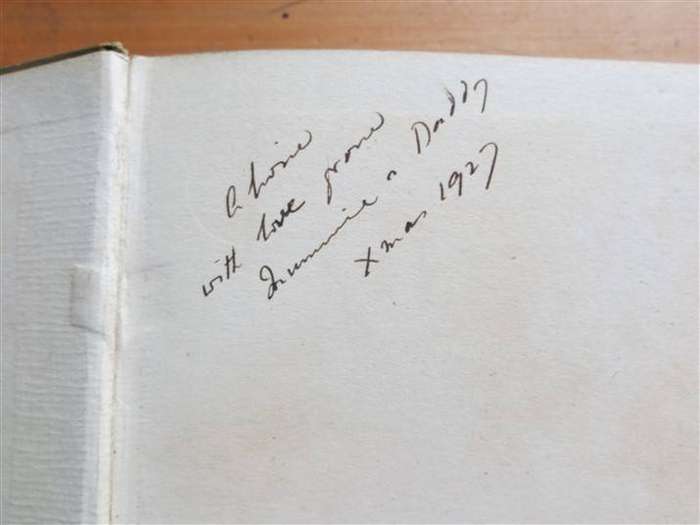 with love from
Mummie & Daddy
Xmas 1927